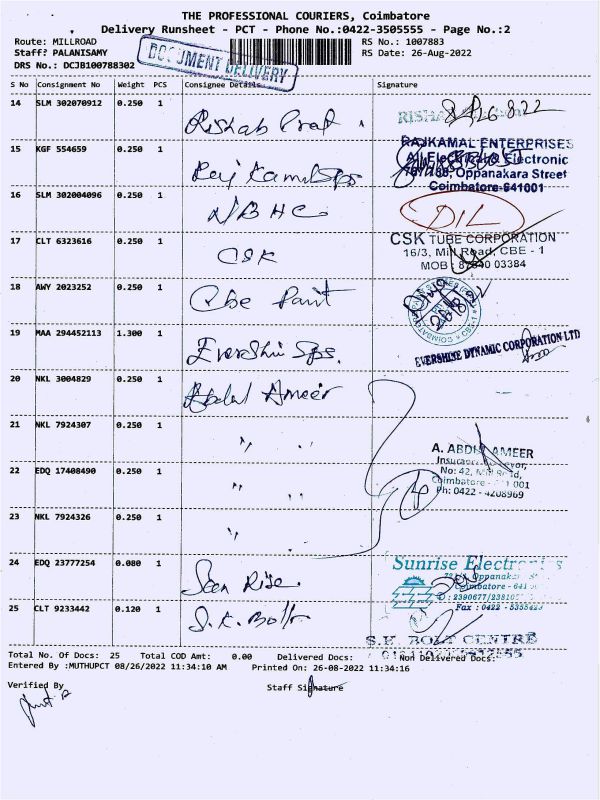 THE PROFESSIONAL COURIERS, Coimbatore
Delivery Runsheet - PCT - Phone No.:0422-3505555 - Page No.:2
Route: MILLROAD RS No.: 1007883
Staff: PALANISAMY RS Date: 26-Aug-2022
DRS No.: DCJB100788302
DOCUMENT DELIVERY
S No Consignment No Weight PCS Consignee Details Signature
14 SLM 302070912 0.250 1 Rishab 26.8.22
15 KGF 554659 0.250 1
RAJKAMAL ENTERPRISES
All Electrical & Electronic
Oppanakara Street
Coimbatore-641001
16 SLM 302004096 0.250 1 NBHC DIL
17 CLT 6323616 0.250 1 CSK
CSK TUBE CORPORATION
16/3, Mill Road, CBE - 1
MOB 03384
18 AWY 2023252 0.250 1 Cbe
19 MAA 294452113 1.300 1 Evershin Sps.
EVERSHINE DYNAMIC CORPORATION LTD
20 NKL 3004829 0.250 1 Abdul Ameer
21 NKL 7924307 0.250 1 " "
A. ABDUL AMEER
22 EDQ 17408490 0.250 1 " "
No: 42,
Coimbatore
Ph: 0422 - 4208969
23 NKL 7924326 0.250 1 "
24 EDQ 23777254 0.080 1 Sun Rise
Sunrise Electronics
Oppanakara
Coimbatore - 641
Fax : 0422 -
25 CLT 9233442 0.120 1 S.K. Bolt
BOLT CENTRE
Total No. Of Docs: 25 Total COD Amt: 0.00 Delivered Docs: Non Delivered Docs:
Entered By :MUTHUPCT 08/26/2022 11:34:10 AM Printed On: 26-08-2022 11:34:16
Verified By Staff Signature